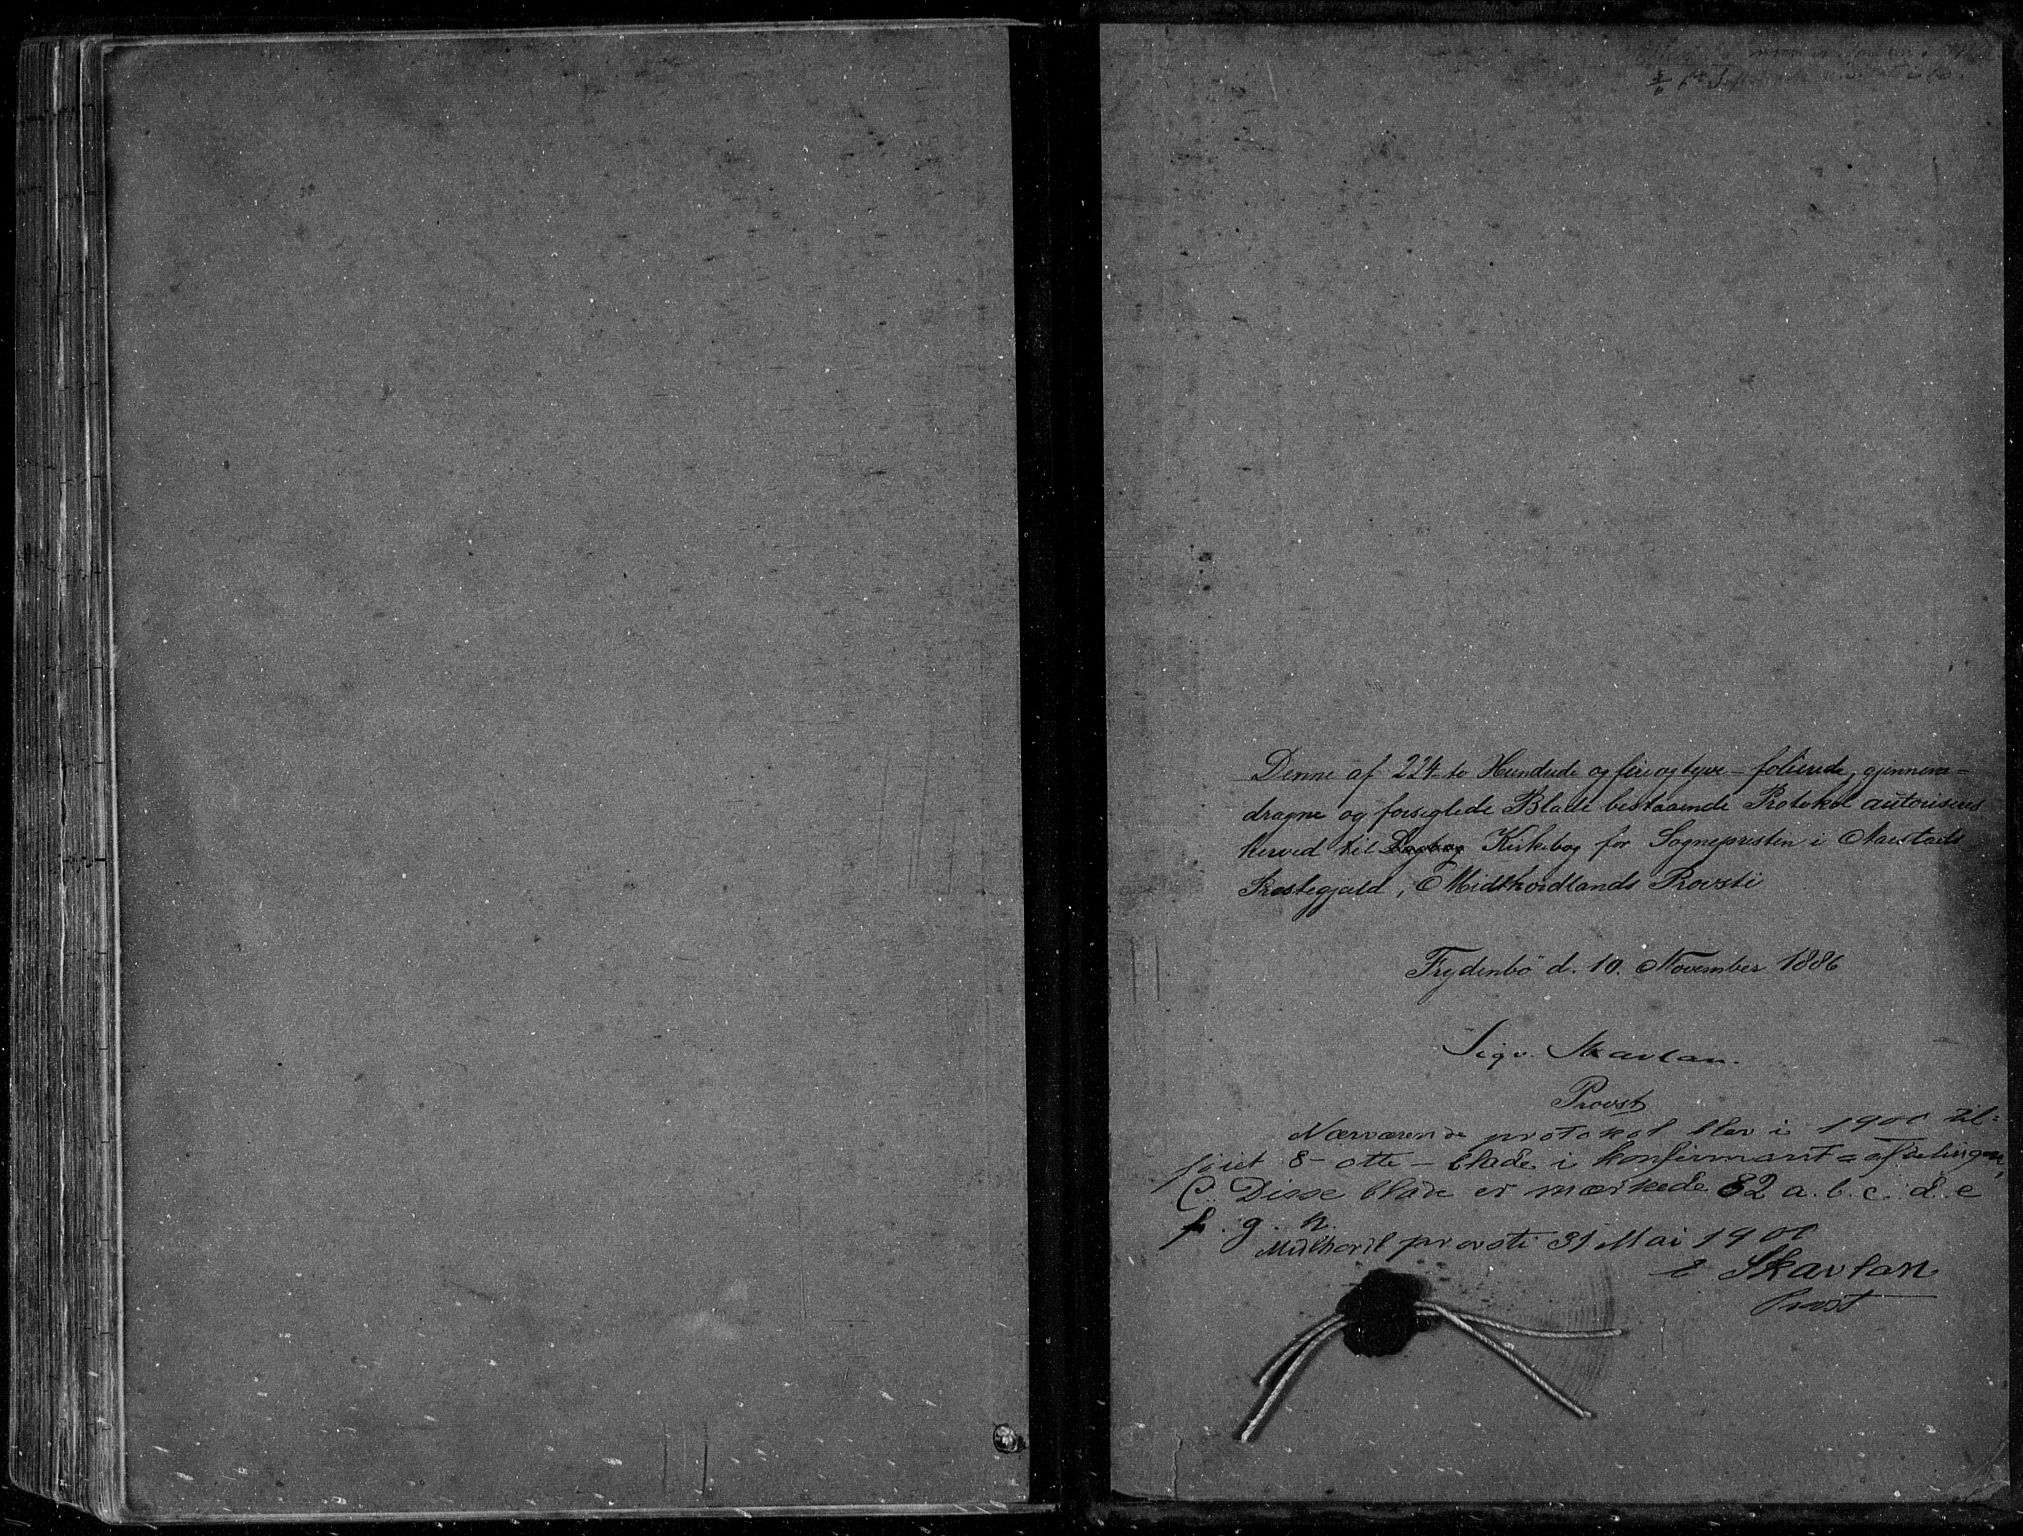 Denne af 224 to Hundrede og fire og tyve – folierede, gjennem-
dragne og forseglede Blade bestaaende Protokol autoriseres
herved til Dagbog Kirkebog for Sognepresten i Aarstads
Prestegjæld, Midthordlands Provsti
Frydenbö d. 10. November 1886
Sigv. Skavlan.
Provst
Nærværende protokol blev i 1900 til-
føiet 8 – otte – blade i konfirmant = afdelingen,
C. Disse blade er mærkede 82 a. b. c. d. e
f. g. h.
Midthordl provsti 31 Mai 1900
Skavlan
Provst